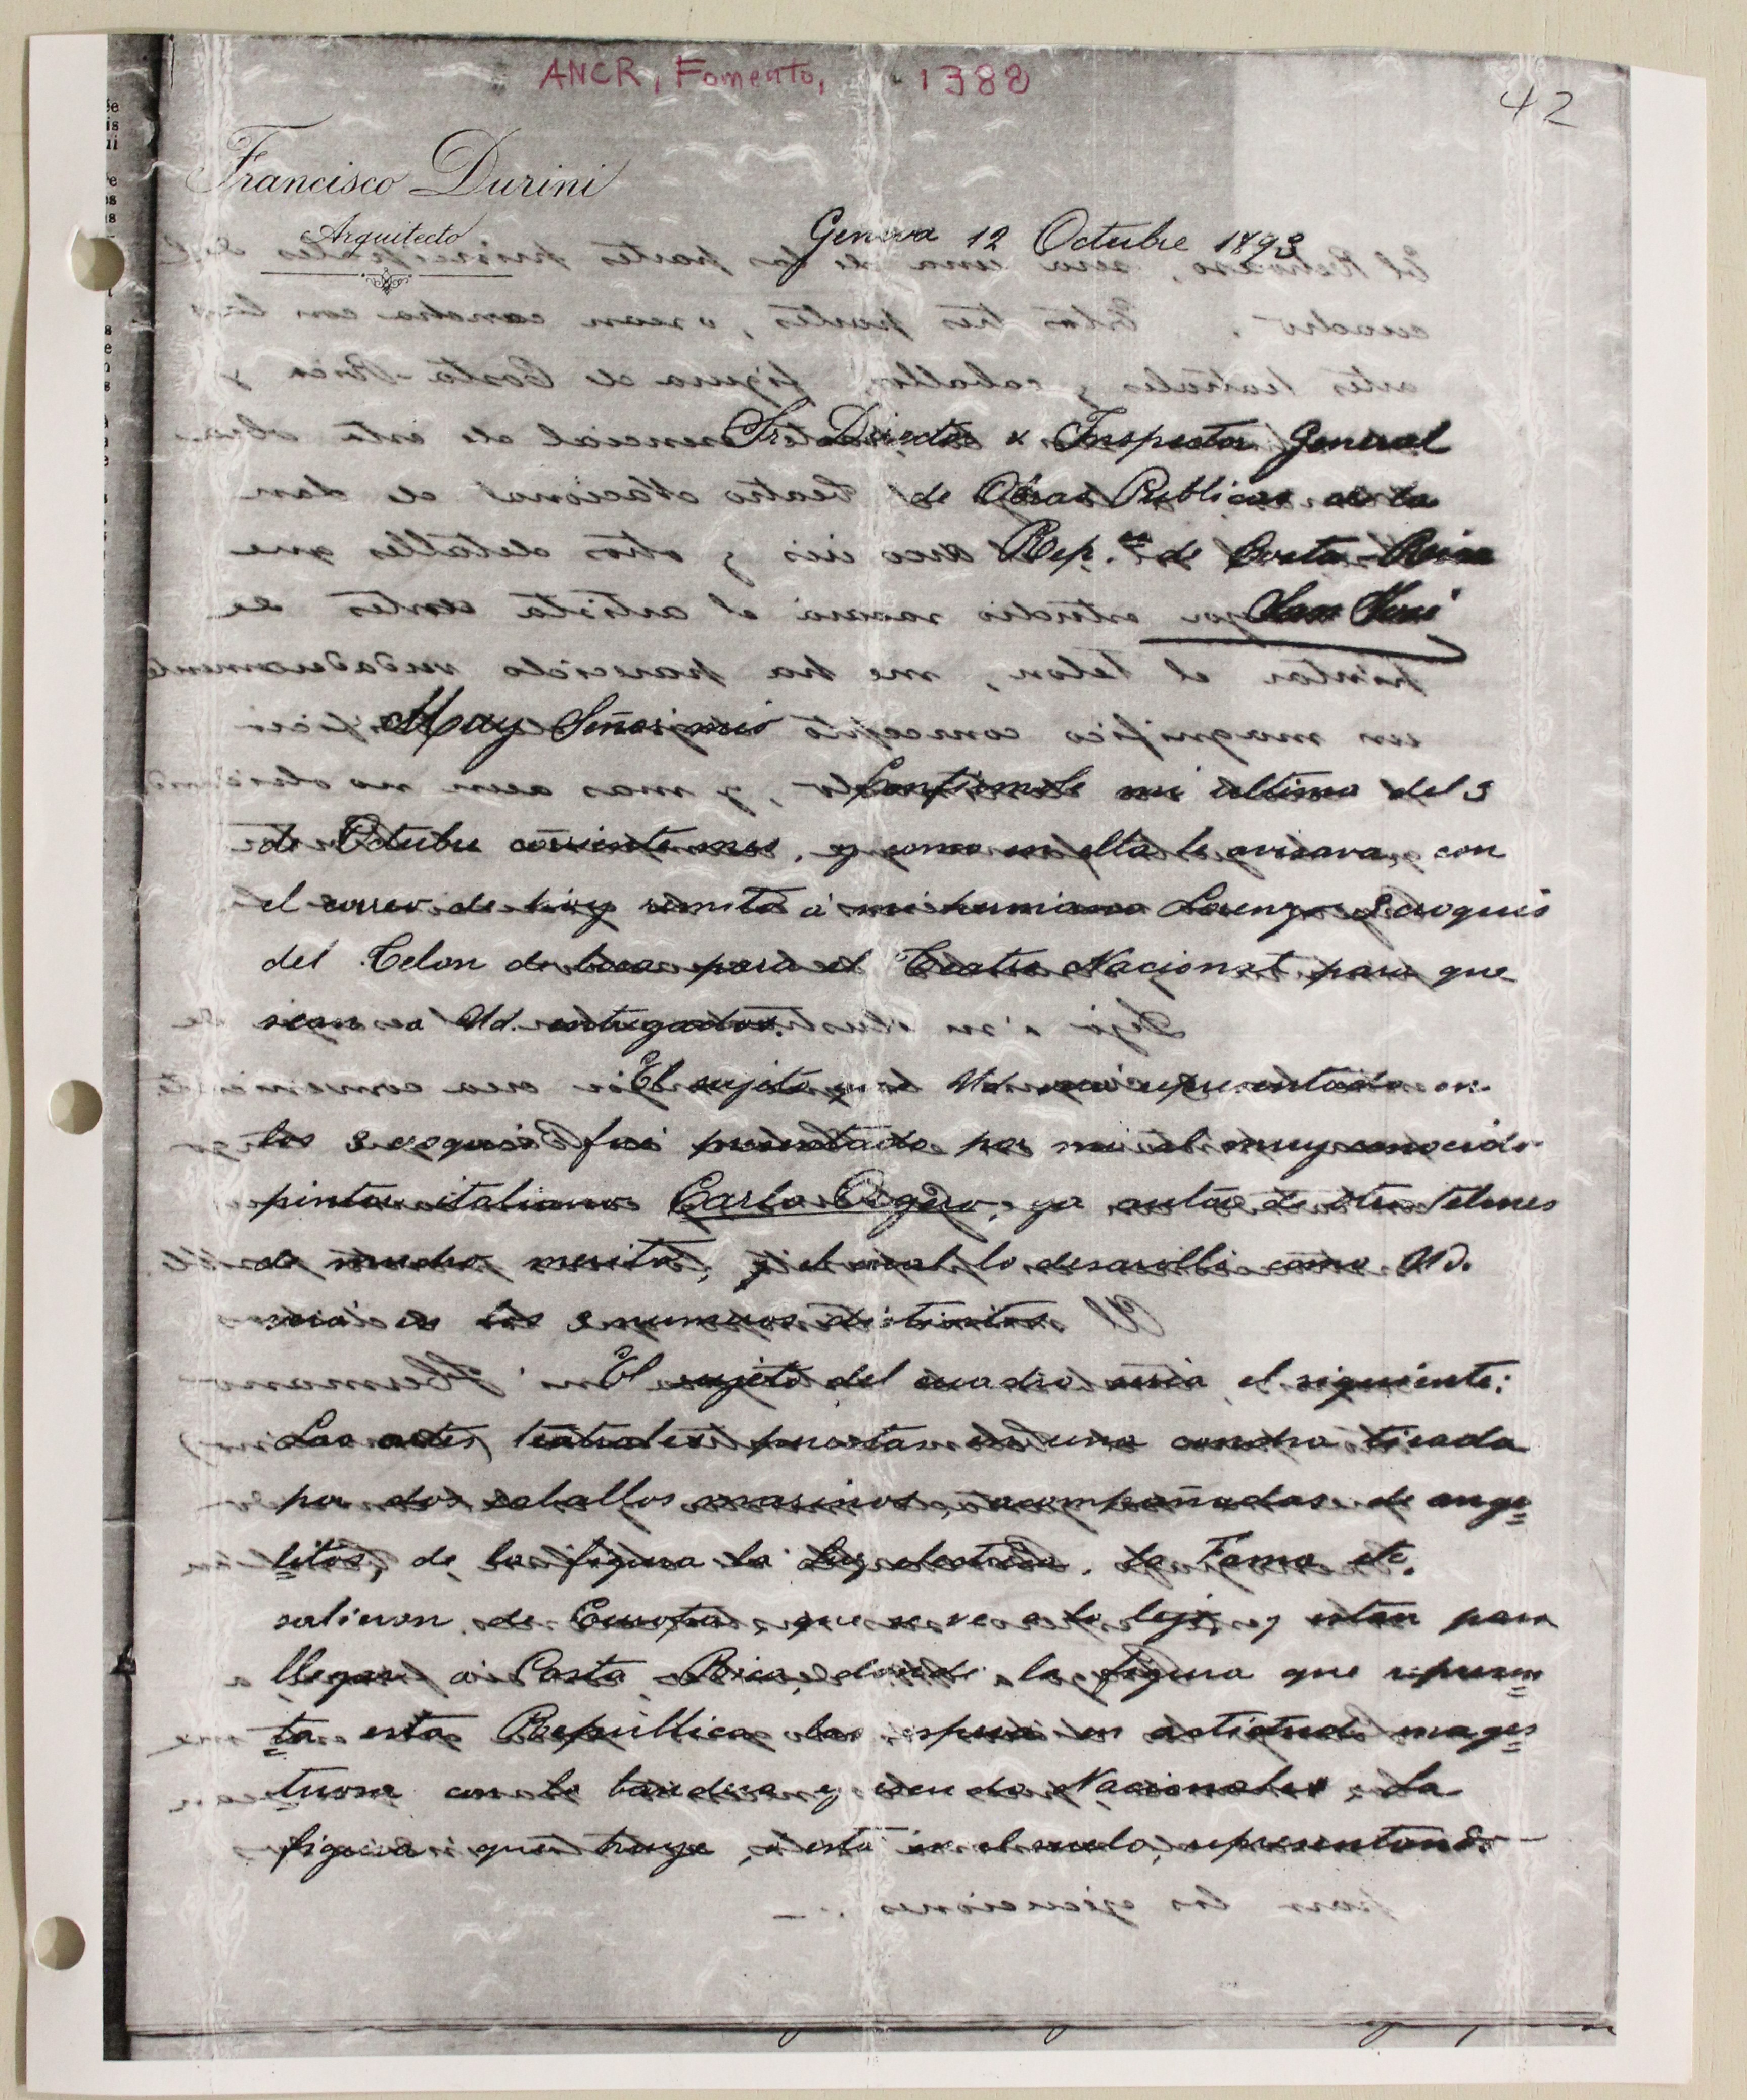 ANCR, Fomento, 1388
42
Francisco Durini
Arquitecto
Genova 12 Octubre 1893
Sr. Director & Inspector General
de Obras Publicas de la
Rep.ca de Costa-Rica
San José
Muy Señor mio
mi ultima del 3
de Octubre corriente mes, y como en ella le avisava, con
el correo de hoy remito á mi hermano Lorenzo 3 croquis
del Telon de boca para el Teatro Nacional para que
sean a Ud. entregados.
El sujeto, que Ud. verá representado en
los 3 croquis fué presentado por mi al muy conocido
pintor italiano Carlo Orgero, ya autor de otros telones
de mucho merito, y el cual lo desarolló como Ud.
verá en los 3 numeros distintos.
El sujeto del cuadro seria el siguiente:
Las artes teatrales puestas en una concha tirada
por dos caballos marinos, acompañadas de ange=
litos, de la figura la Luz electrica, la Fama etc.
salieron de Europa, que se ve a lo lejos y estan para
llegar á Costa-Rica, donde la figura que represen=
ta esta Republica las espera en actitud mages=
tuosa con la bandera y escudo Nacionales. La
figura que huye, á esta en el suelo, representando